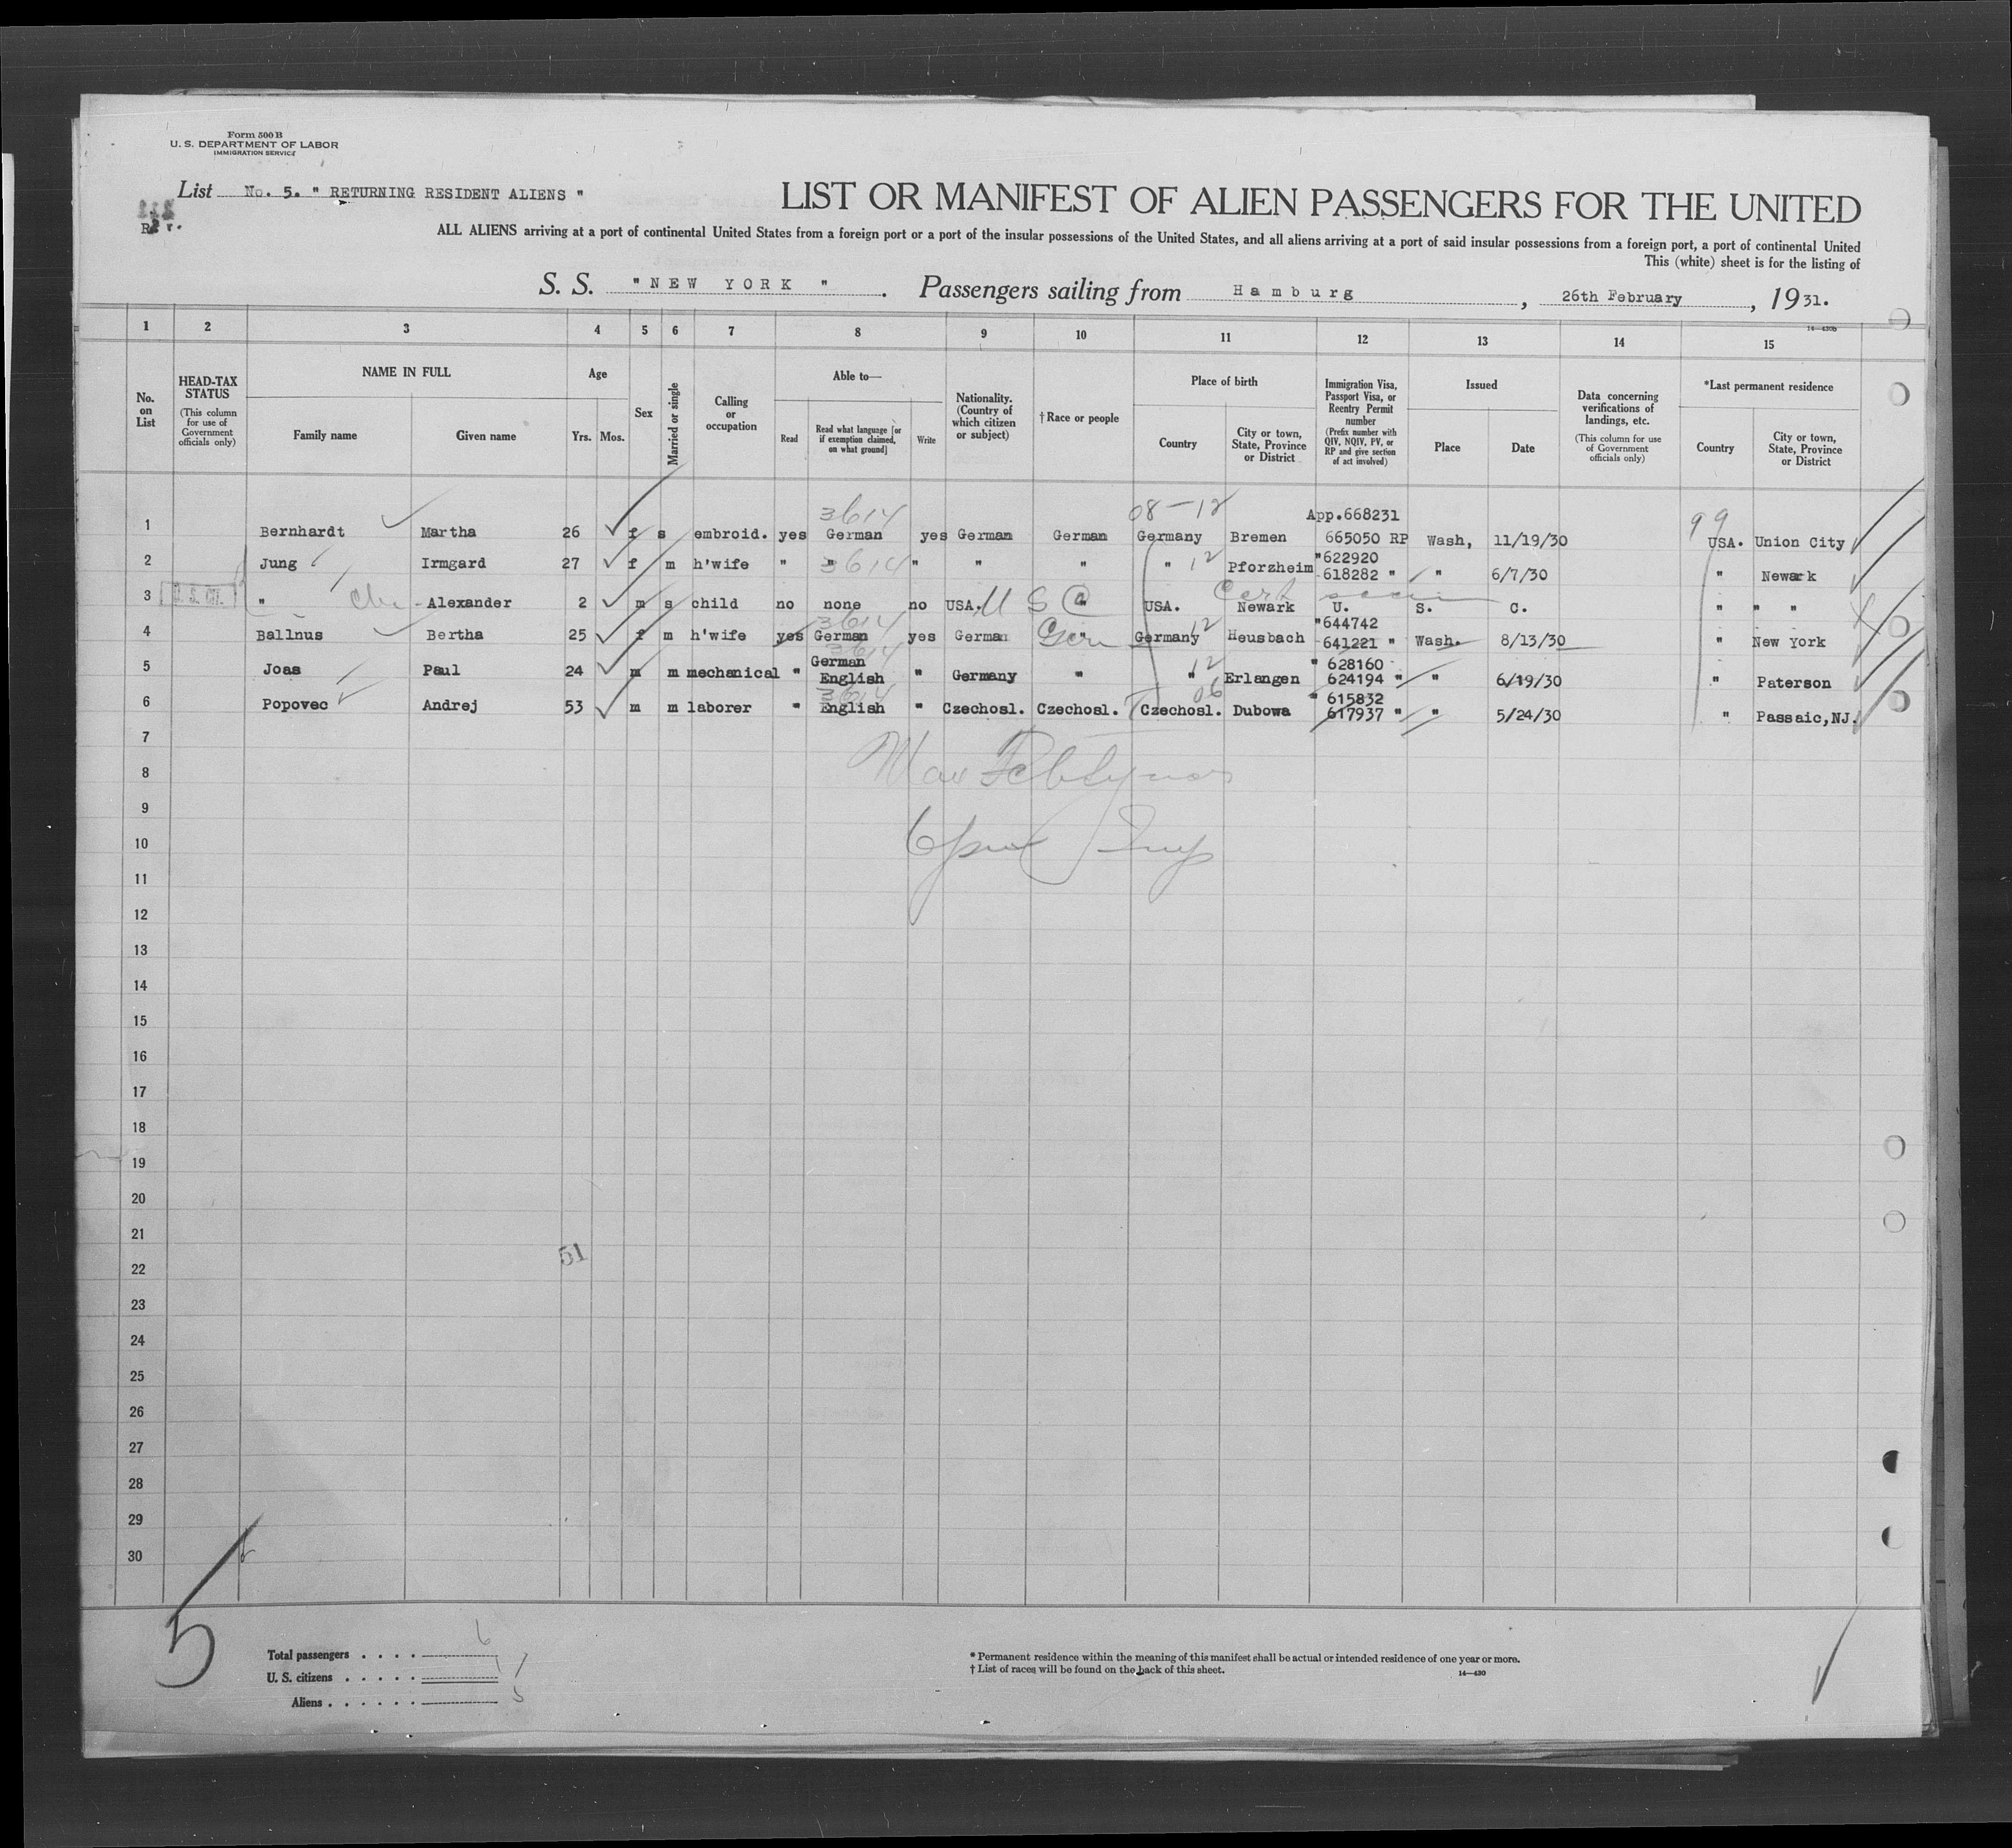 Form 500 B
U. S. DEPARTMENT OF LABOR
IMMIGRATION SERVICE
List No. 5. " RETURNING RESIDENT ALIENS "
LIST OR MANIFEST OF ALIEN PASSENGERS FOR THE UNITED
ALL ALIENS arriving at a port of continental United States from a foreign port or a port of the insular possessions of the United States, and all aliens arriving at a port of said insular possessions from a foreign port, a port of continental United
This (white) sheet is for the listing of
S. S. " NEW YORK ". Passengers sailing from Hamburg, 26th February, 1931.
14—430b
1 2 3 4 5 6 7 8 9 10 11 12 13 14 15
No. on List
HEAD-TAX STATUS
(This column for use of Government officials only)
NAME IN FULL
Family name
Given name
Age
Yrs. Mos.
Sex
Married or single
Calling or occupation
Able to—
Read
Read what language [or if exemption claimed, on what ground]
Write
Nationality. (Country of which citizen or subject)
†Race or people
Place of birth
Country
City or town, State, Province or District
Immigration Visa, Passport Visa, or Reentry Permit number
(Prefix number with QIV, NQIV, PV, or RP and give section of act involved)
Issued
Place
Date
Data concerning verifications of landings, etc.
(This column for use of Government officials only)
*Last permanent residence
Country
City or town, State, Province or District
3614 08-12 App.668231 99
1 Bernhardt Martha 26 f s embroid. yes German yes German German Germany Bremen 665050 RP Wash, 11/19/30 USA. Union City
"622920
2 Jung Irmgard 27 f m h'wife " " 3614 " " " " 12 Pforzheim 618282 " " 6/7/30 " Newark
3 " Alexander 2 m s child no none no USA. U S C " USA. Newark U. S. C. " " "
3614 12 "644742
4 Ballnus Bertha 25 f m h'wife yes German yes German Ger " Germany Heusbach 641221 " Wash. 8/13/30 " New York
3614 German 12 " 628160
5 Joas Paul 24 m m mechanical " English " Germany " " Erlangen 624194 " " 6/19/30 " Paterson
3614 06 " 615832
6 Popovec Andrej 53 m m laborer " English " Czechosl. Czechosl. Czechosl. Dubowa 617937 " " 5/24/30 " Passaic,NJ.
7
8
9
10
11
12
13
14
15
16
17
18
19
20
21
51
22
23
24
25
26
27
28
29
30
5
Total passengers . . . . 6
U. S. citizens . . . . . 1
Aliens . . . . . . 5
* Permanent residence within the meaning of this manifest shall be actual or intended residence of one year or more.
† List of races will be found on the back of this sheet.
14—430